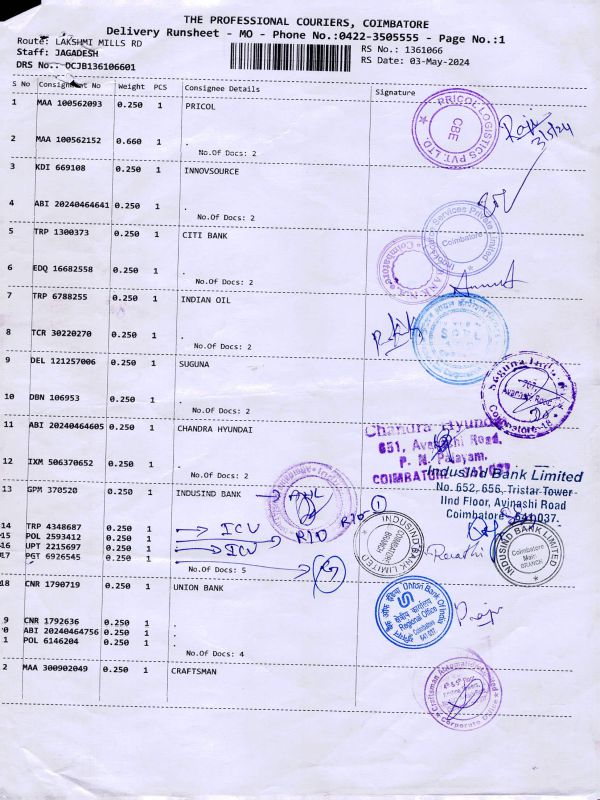 THE PROFESSIONAL COURIERS, COIMBATORE
Delivery Runsheet - MO - Phone No.:0422-3505555 - Page No.:1
Route: LAKSHMI MILLS RD
RS No.: 1361066
Staff: JAGADESH
RS Date: 03-May-2024
DRS No.: OCJB136106601
S No Consignment No Weight PCS Consignee Details Signature
1 MAA 100562093 0.250 1 PRICOL
PRICOL LOGISTICS PVT. LTD
CBE
3/5/24
2 MAA 100562152 0.660 1 .
No.Of Docs: 2
3 KDI 669108 0.250 1 INNOVSOURCE
4 ABI 20240464641 0.250 1 .
No.Of Docs: 2
Services Private Limited
Coimbatore
5 TRP 1300373 0.250 1 CITI BANK
6 EDQ 16682558 0.250 1 .
No.Of Docs: 2
7 TRP 6788255 0.250 1 INDIAN OIL
8 TCR 30220270 0.250 1 .
No.Of Docs: 2
9 DEL 121257006 0.250 1 SUGUNA
10 DBN 106953 0.250 1 .
No.Of Docs: 2
Coimbatore-18
11 ABI 20240464605 0.250 1 CHANDRA HYUNDAI
Chandra Hyundai
651, Avanashi Road,
P. N. Palayam,
12 IXM 506370652 0.250 1 .
No.Of Docs: 2
IndusInd Bank Limited
No. 652, 656, Tristar Tower
IInd Floor, Avinashi Road
Coimbatore - 641 037.
13 GPM 370520 0.250 1 INDUSIND BANK
14 TRP 4348687 0.250 1 ICU
15 POL 2593412 0.250 1 RIO RIO 1
16 UPT 2215697 0.250 1 ICU
17 PGT 6926545 0.250 1
No.Of Docs: 5
INDUSIND BANK LIMITED
COIMBATORE
BRANCH
INDUSIND BANK LIMITED
Coimbatore
Main
BRANCH
18 CNR 1790719 0.250 1 UNION BANK
Union Bank Of India
Regional Office
Coimbatore
641 037
9 CNR 1792636 0.250 1 .
0 ABI 20240464756 0.250 1 .
1 POL 6146204 0.250 1 .
No.Of Docs: 4
2 MAA 300902049 0.250 1 CRAFTSMAN
Craftsman Automation Limited
Corporate Office